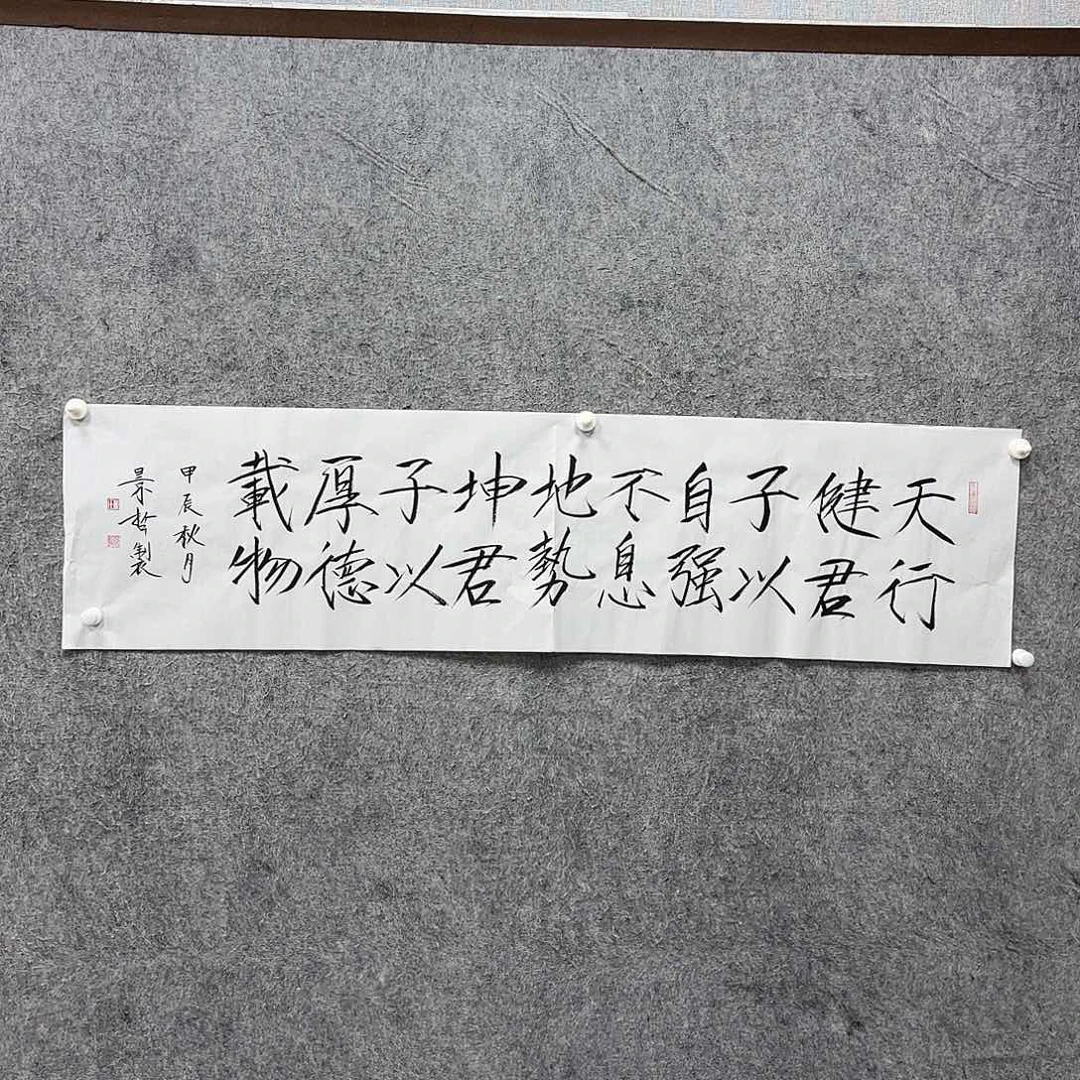 天行
健君
子以
自强
不息
地勢
坤君
子以
厚德
載物
甲辰秋月
景哲製